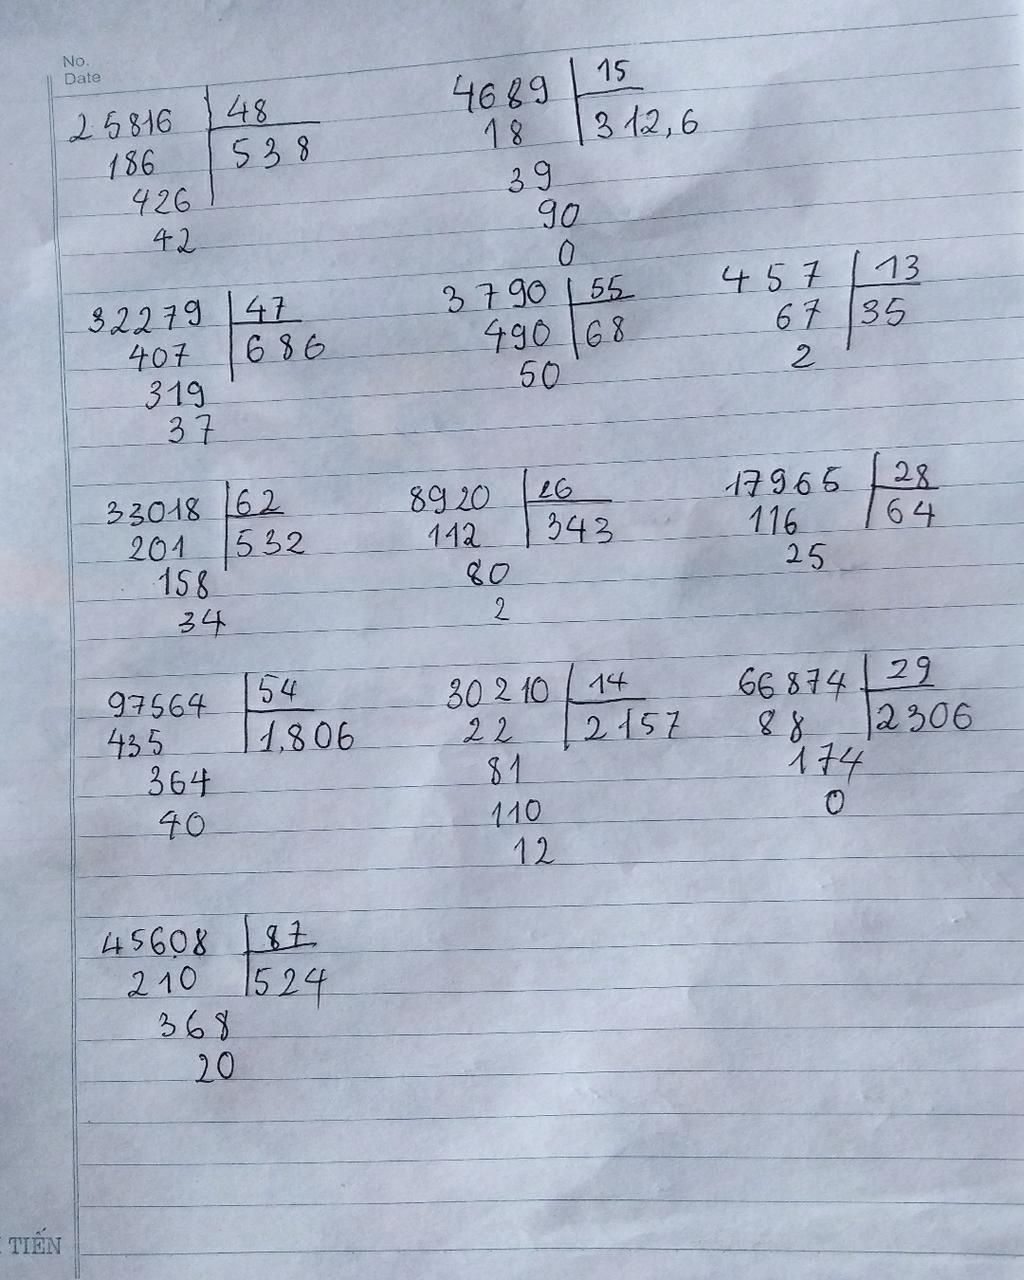 No.
Date
25816 48
186 538
426
42
4689 15
18 312,6
39
90
0
32279 47
407 686
319
37
3790 55
490 68
50
457 13
67 35
2
33018 62
201 532
158
34
8920 26
112 343
80
2
17965 28
116 64
25
97564 54
435 1,806
364
40
30210 14
22 2157
81
110
12
66874 29
88 2306
174
0
45608 87
210 524
368
20
TIẾN